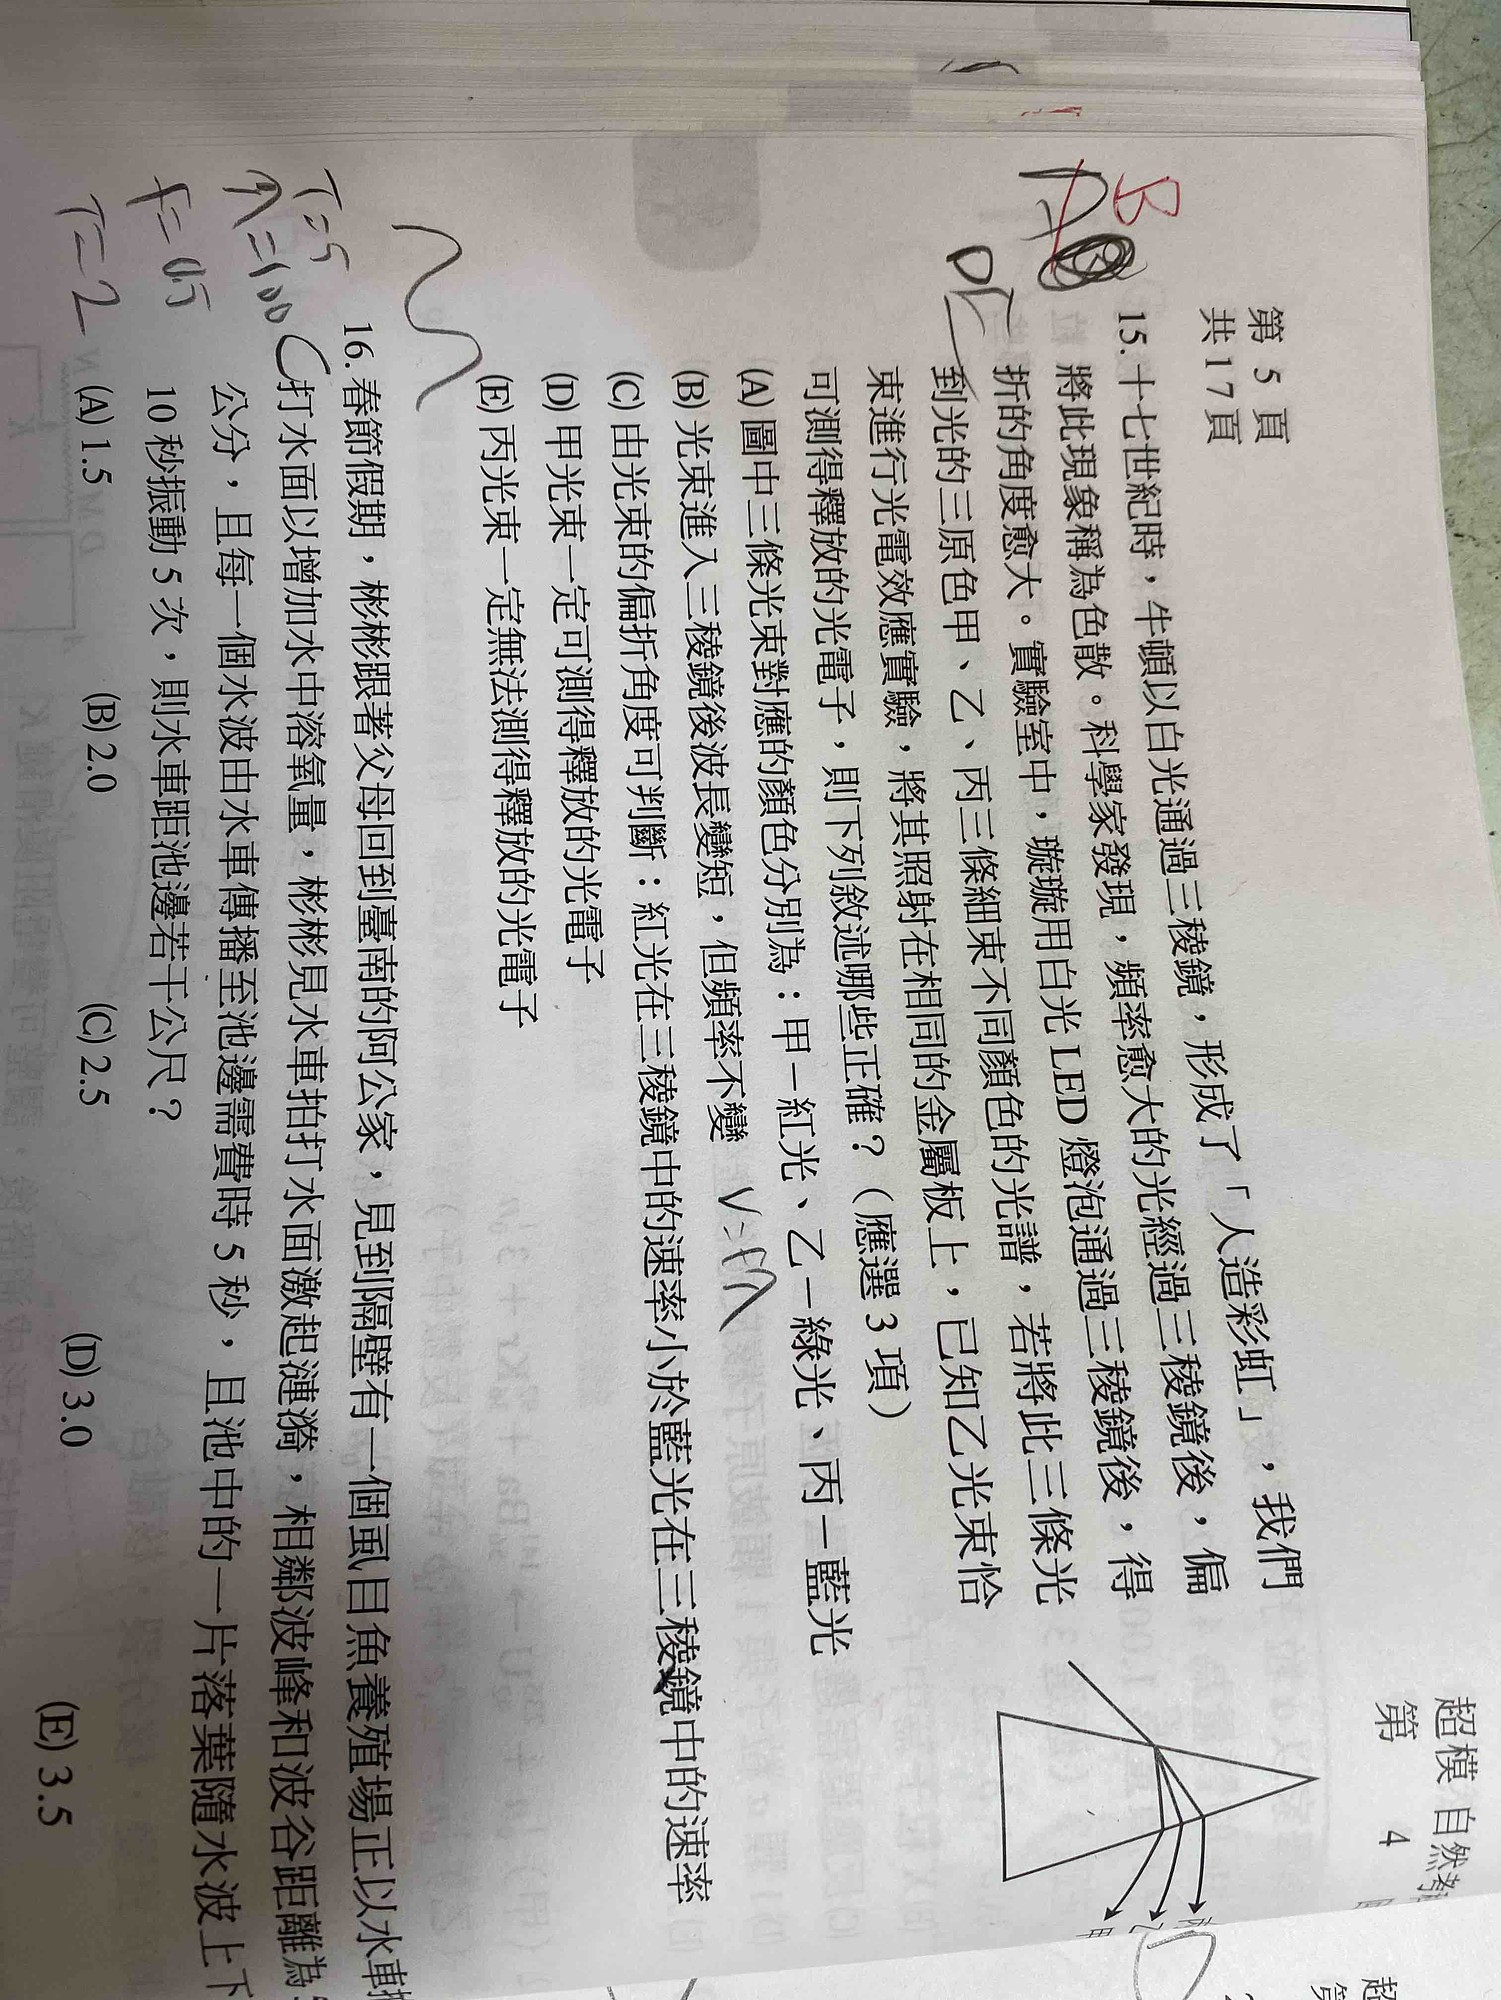 超模 自然考
第 4
第 5 頁
共17頁
15. 十七世紀時，牛頓以白光通過三稜鏡，形成了「人造彩虹」，我們
將此現象稱為色散。科學家發現，頻率愈大的光經過三稜鏡後，偏
折的角度愈大。實驗室中，璇璇用白光 LED 燈泡通過三稜鏡後，得
到光的三原色甲、乙、丙三條細束不同顏色的光譜，若將此三條光
束進行光電效應實驗，將其照射在相同的金屬板上，已知乙光束恰
可測得釋放的光電子，則下列敘述哪些正確？（應選 3 項）
(A) 圖中三條光束對應的顏色分別為：甲－紅光、乙－綠光、丙－藍光
(B) 光束進入三稜鏡後波長變短，但頻率不變
V=fλ
(C) 由光束的偏折角度可判斷：紅光在三稜鏡中的速率小於藍光在三稜鏡中的速率
(D) 甲光束一定可測得釋放的光電子
(E) 丙光束一定無法測得釋放的光電子
丙
乙
甲
B
DE
16. 春節假期，彬彬跟著父母回到臺南的阿公家，見到隔壁有一個虱目魚養殖場正以水車
打水面以增加水中溶氧量，彬彬見水車拍打水面激起漣漪，相鄰波峰和波谷距離為
公分，且每一個水波由水車傳播至池邊需費時 5 秒，且池中的一片落葉隨水波上下
10 秒振動 5 次，則水車距池邊若干公尺？
(A) 1.5 (B) 2.0 (C) 2.5 (D) 3.0 (E) 3.5
C
T=5
λ=100
f=0.5
T=2